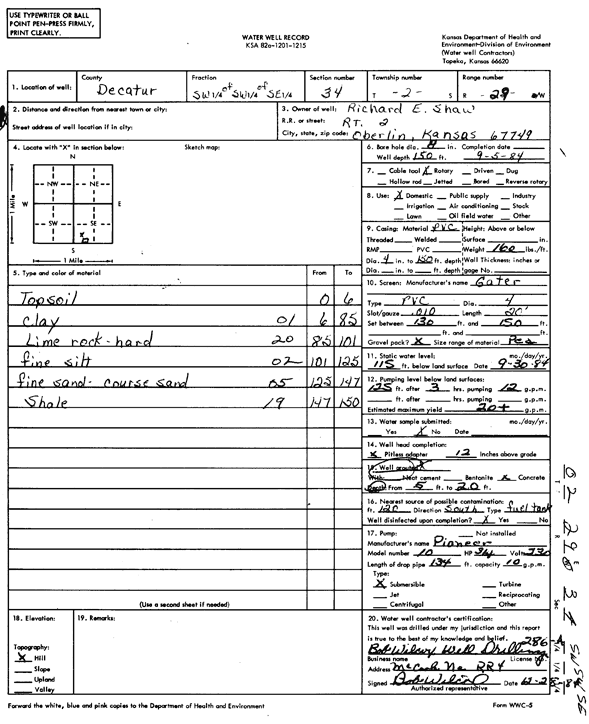 USE TYPEWRITER OR BALL
POINT PEN-PRESS FIRMLY,
PRINT CLEARLY.
WATER WELL RECORD
KSA 82a-1201-1215
Kansas Department of Health and
Environment-Division of Environment
(Water well Contractors)
Topeka, Kansas 66620
1. Location of well: County Decatur Fraction SW 1/4 of SW 1/4 of SE 1/4 Section number 34 Township number T -2- S Range number R -29- W
2. Distance and direction from nearest town or city:
Street address of well location if in city:
3. Owner of well: Richard E. Shaw
R.R. or street: RT. 2
City, state, zip code: Oberlin, Kansas 67749
4. Locate with "X" in section below: Sketch map:
N
NW NE
W E
SW SE
X
S
1 Mile
1 Mile
6. Bore hole dia. 8 in. Completion date
Well depth 150 ft. 9-5-84
7. Cable tool X Rotary Driven Dug
Hollow rod Jetted Bored Reverse rotary
8. Use: X Domestic Public supply Industry
Irrigation Air conditioning Stock
Lawn Oil field water Other
9. Casing: Material PVC Height: Above or below
Threaded Welded Surface in.
RMP PVC Weight 160 lbs./ft.
Dia. 4 in. to 150 ft. depth Wall Thickness: inches or
Dia. in. to ft. depth gage No.
5. Type and color of material From To
Topsoil 0 6
Clay 01 6 85
Lime rock-hard 20 85 101
fine silt 02 101 125
fine sand- course sand 05 125 147
Shale 19 147 150
10. Screen: Manufacturer's name Gater
Type PVC Dia. 4
Slot/gauze .010 Length 20'
Set between 130 ft. and 150 ft.
ft. and ft.
Gravel pack? X Size range of material Pea
11. Static water level: mo./day/yr.
115 ft. below land surface Date 9-30-84
12. Pumping level below land surfaces:
125 ft. after 3 hrs. pumping 12 g.p.m.
ft. after hrs. pumping g.p.m.
Estimated maximum yield 20+ g.p.m.
13. Water sample submitted: mo./day/yr.
Yes X No Date
14. Well head completion:
X Pitless adapter 12 Inches above grade
15. Well grouted X
With: Neat cement Bentonite X Concrete
Depth: From 5 ft. to 20 ft.
16. Nearest source of possible contamination:
ft. 120 Direction South Type fuel tank
Well disinfected upon completion? X Yes No
17. Pump: Not installed
Manufacturer's name Pioneer
Model number 10 HP 3/4 Volts 230
Length of drop pipe 134 ft. capacity 10 g.p.m.
Type:
X Submersible Turbine
Jet Reciprocating
Centrifugal Other
(Use a second sheet if needed)
18. Elevation:
19. Remarks:
Topography:
X Hill
Slope
Upland
Valley
20. Water well contractor's certification:
This well was drilled under my jurisdiction and this report
is true to the best of my knowledge and belief. 286-A
Well Drilling
Business name License No.
Address McCook Ne. RR4
Signed Date
Authorized representative
Forward the white, blue and pink copies to the Department of Health and Environment
Form WWC-5